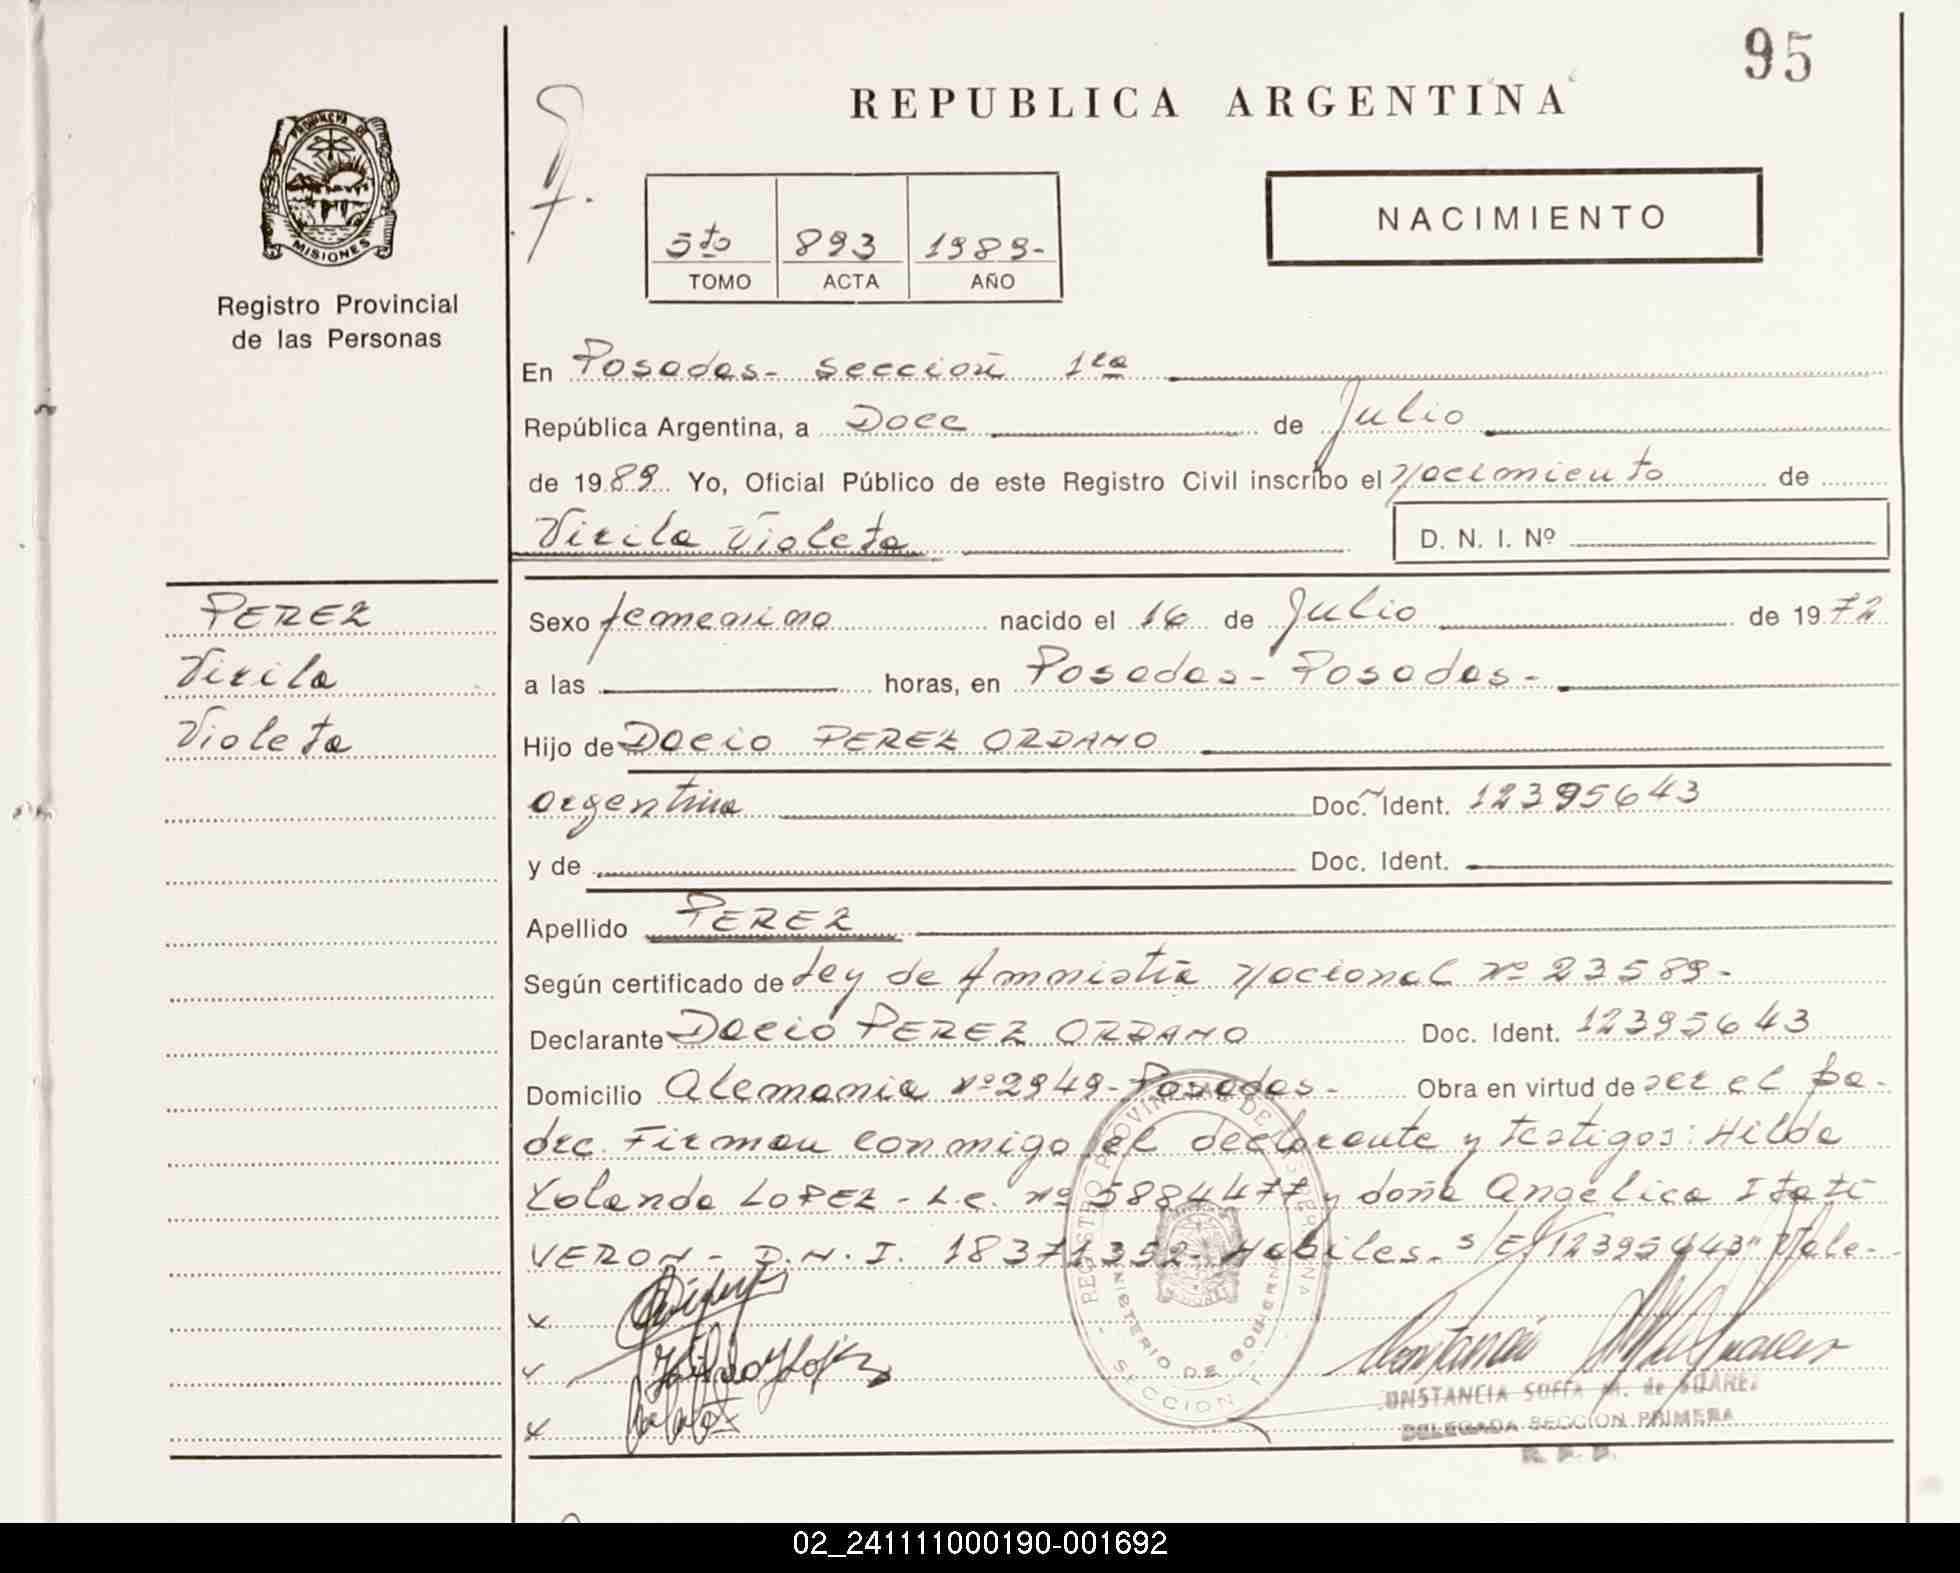 95
REPUBLICA ARGENTINA
PROVINCIA DE
MISIONES
Registro Provincial
de las Personas
NACIMIENTO
5to 893 1989-
TOMO ACTA AÑO
En Posadas- sección 1ra
República Argentina, a Doce de Julio
de 1989 Yo, Oficial Público de este Registro Civil inscribo el nacimiento de
Virila Violeta D. N. I. Nº
PEREZ
Virila
Violeta
Sexo femenino nacido el 16 de Julio de 1972
a las horas, en Posadas- Posadas-
Hijo de Dacio PEREZ ORDANO
argentina Doc. Ident. 12395643
y de Doc. Ident.
Apellido PEREZ
Según certificado de Ley de Amnistia Nacional Nº 23589-
Declarante Dacio PEREZ ORDANO Doc. Ident. 12395643
Domicilio Alemania Nº 2949- Posadas- Obra en virtud de ser el pa-
dre. Firman conmigo el declarante y testigos: Hilda
Yolanda LOPEZ - L.c. nº 5884477 y doña Angelica Itati
VERON - D.N.I. 18371352- Habiles. s/E/"12395643" Vale-
REGISTRO PROVINCIAL DE LAS PERSONAS
MINISTERIO DE GOBIERNO
SECCION 1
CONSTANCIA SOFIA M. de SUAREZ
DELEGADA SECCION PRIMERA
R. P. P.
02_241111000190-001692